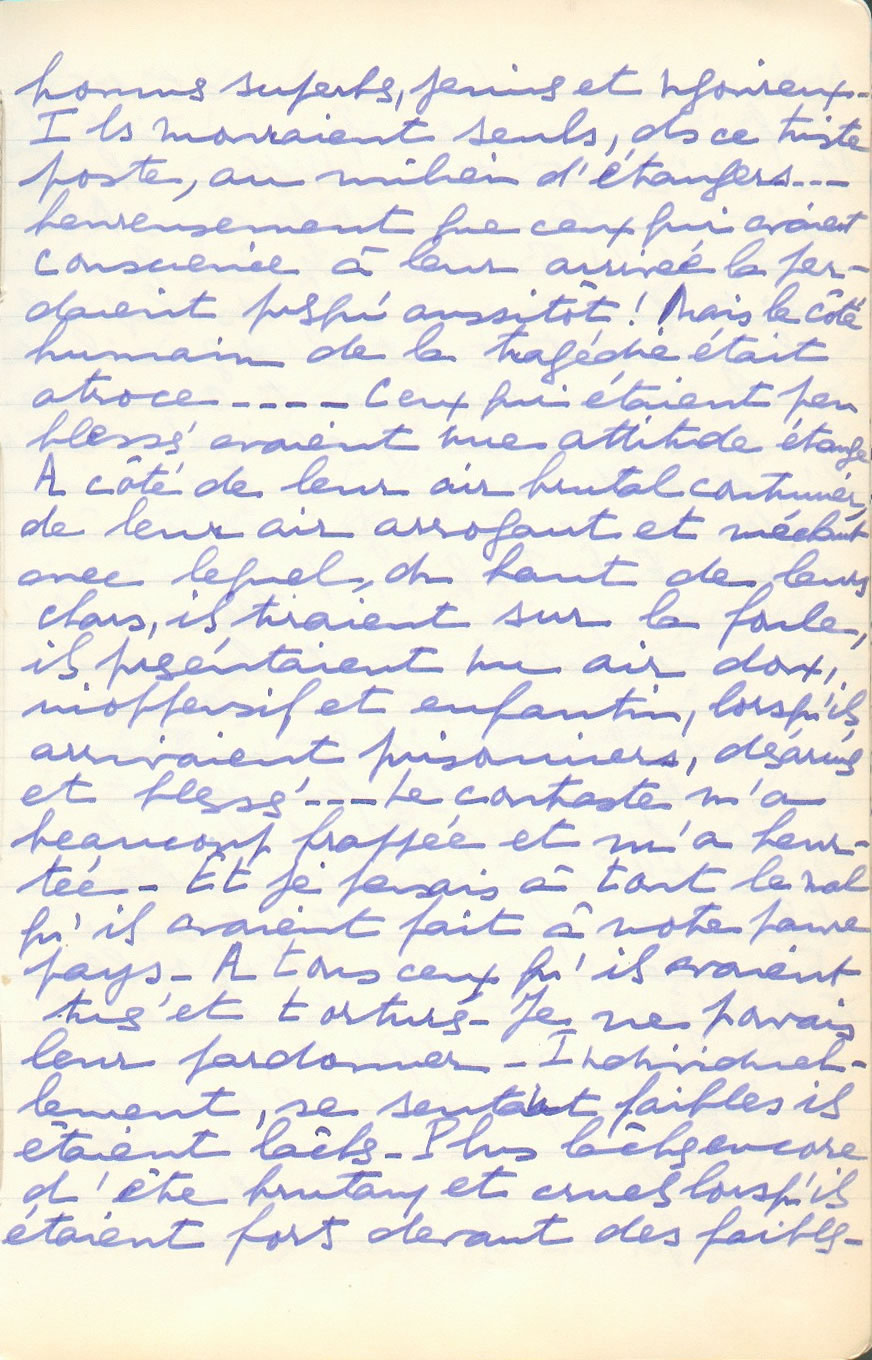 hommes superbes, jeunes et vigoureux.
Ils mouraient seuls, ds ce triste
poste, au milieu d'étrangers ---
heureusement que ceux qui avaient
conscience à leur arrivée la per-
daient presqu'aussitôt ! Mais le côté
humain de la tragédie était
atroce ---- Ceux qui étaient peu
blessés avaient une attitude étrange
A côté de leur air brutal coutumier,
de leur air arrogant et méchant
avec lequel, du haut de leurs
chars, ils tiraient sur la foule,
ils présentaient un air doux,
inoffensif et enfantin, lorsqu'ils
arrivaient prisonniers, désarmés
et blessés --- Le contraste m'a
beaucoup frappée et m'a heur-
tée - Et je pensais à tout le mal
qu'ils avaient fait à notre pauvre
pays - A tous ceux qu'ils avaient
tués et torturés - Je ne pouvais
leur pardonner - Individuel-
lement, se sentant faibles ils
étaient lâches - Plus lâches encore
d'être brutaux et cruels lorsqu'ils
étaient forts devant des faibles -